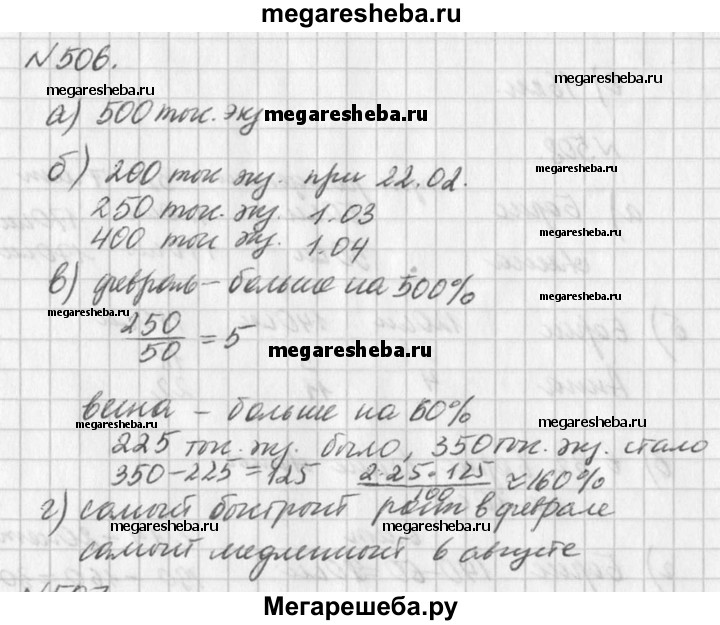 megaresheba.ru
№506.
megaresheba.ru megaresheba.ru
а) 500 тыс. экз megaresheba.ru
б) 200 тыс экз. при 22.02.
megaresheba.ru
250 тыс. экз. 1.03
400 тыс экз. 1.04
megaresheba.ru
в) февраль – больше на 500%
megaresheba.ru megaresheba.ru
250/50 = 5 megaresheba.ru
весна – больше на 60%
megaresheba.ru
225 тыс. экз. было, 350 тыс. экз. стало
350-225=125 2·25·125/100 ≈160%
г) самый быстрый рост в феврале
megaresheba.ru megaresheba.ru
самый медленный в августе
megaresheba.ru megaresheba.ru
Мегарешеба.ру